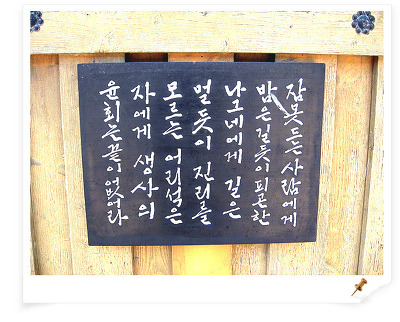 잠못드는사람에게
밤은길듯이피곤한
나그네에게 길은
멀듯이 진리를
모르는 어리석은
자에게 생사의
윤회는끝이없어라